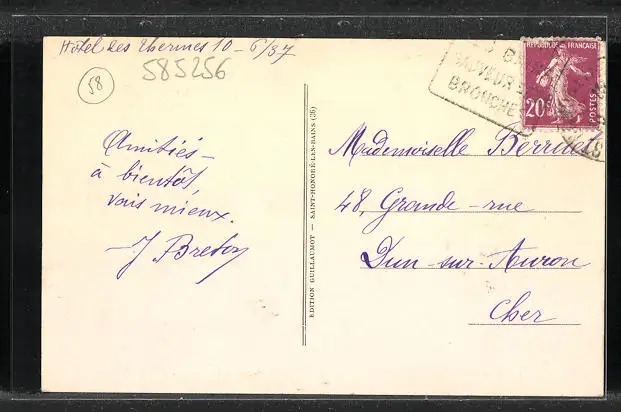 Hôtel des Thermes 10-6/37
58
585256
Amitiés -
à bientôt,
vais mieux.
J Breton
EDITION GUILLAUMOT — SAINT-HONORÉ-LES-BAINS (36)
BRONCHES
RÉPUBLIQUE FRANÇAISE
20
POSTES
Mademoiselle Berruet
48, Grande-rue
Dun-sur-Auron
Cher